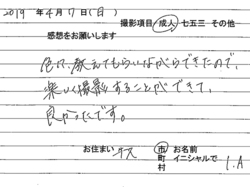 2019年4月7日(日)
撮影項目 成人 七五三 その他
感想をお願いします
色々、教えてもらいながらできたので、
楽しく撮影することができて、
良かったです。
お住まい
市 町 村
お名前
イニシャルで I.A